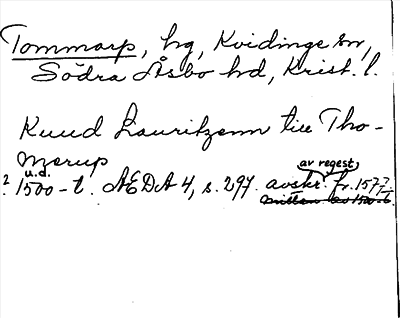 Tommarp, hg, Kvidinge sn,
Södra Åsbo hd, Krist. l.
Knud Lauritzenn till Tho-
merup
u.d. av regest
? 1500-t. ÆDA 4, s. 297. avskr. fr. 1577?
mitten av 1500-t.